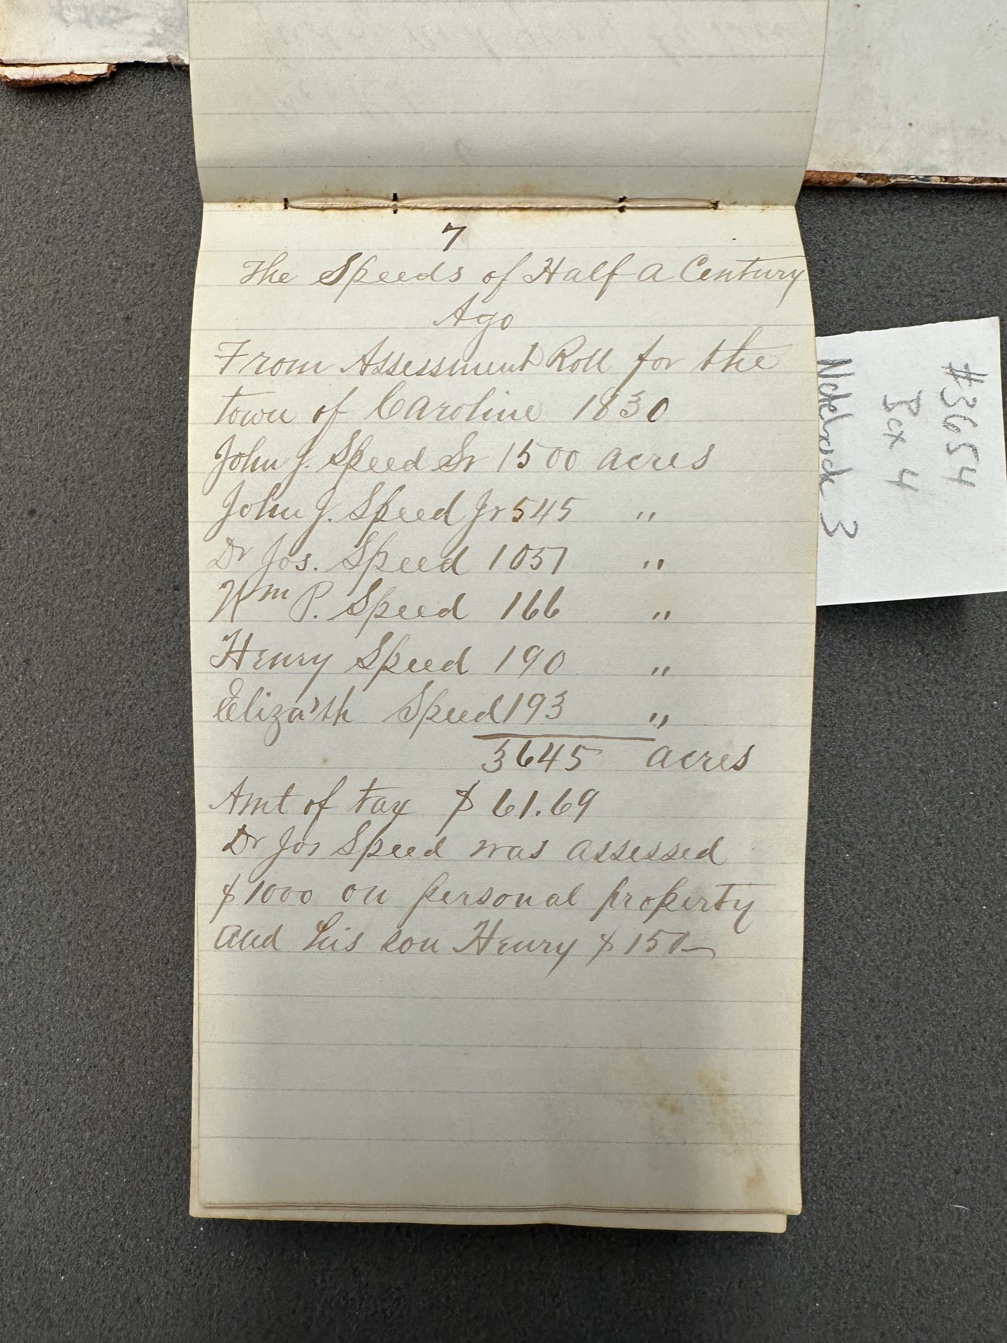 7
The Speeds of Half a Century
Ago
From Assessment Roll for the
town of Caroline 1830
John J. Speed Sr 1500 acres
John J. Speed Jr 545 "
Dr Jos. Speed 1051 "
Wm P. Speed 166 "
Henry Speed 190 "
Eliza'th Speed 193 "
3645 acres
Amt of tax $ 61.69
Dr Jos Speed was assessed
$1000 on personal property
and his son Henry $ 150
#3654
Box 4
Notebook 3